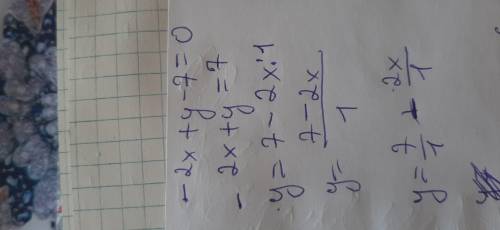 -2x+y-7=0
-2x+y=7
y=7-2x:1
y= 7-2x/1
y= 7/1 - 2x/1
y